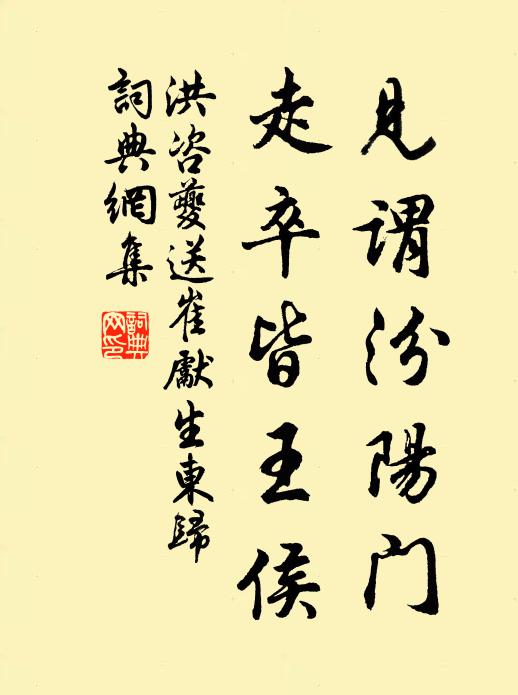 見謂汾陽門
走卒皆王侯
洪咨夔送崔獻生東歸
詞典網集
詞典网印